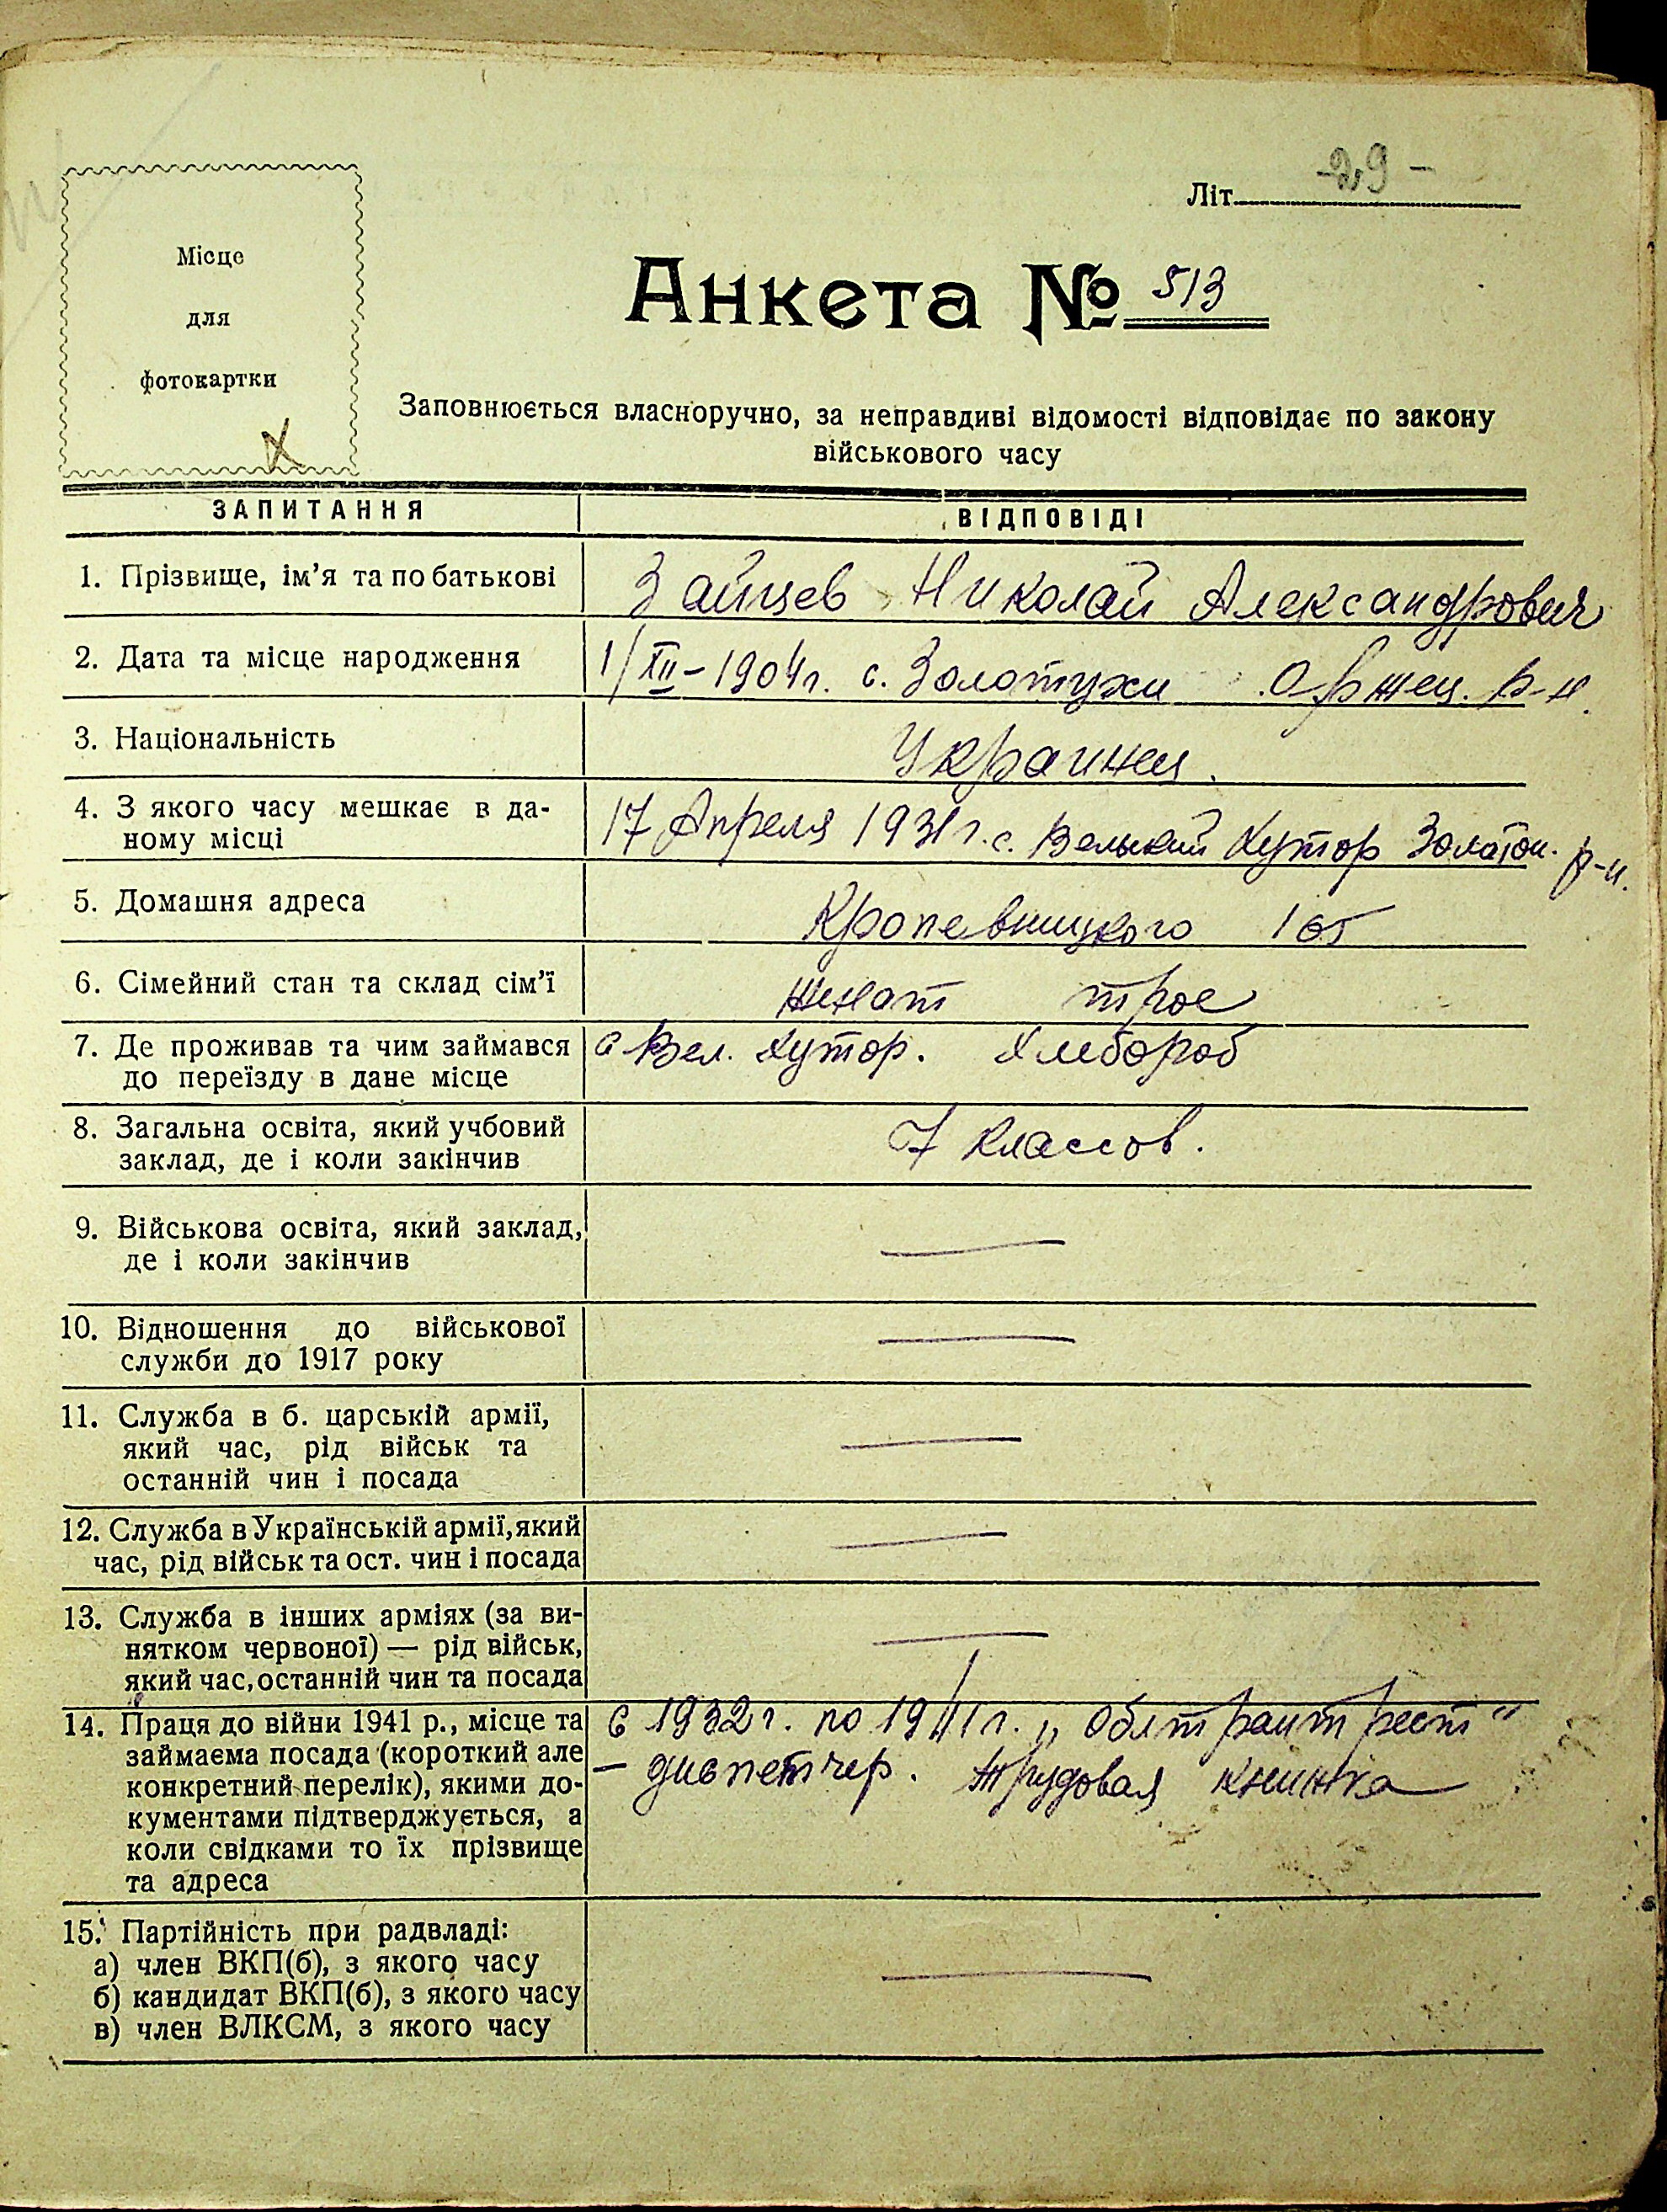 Літ. -29-
Місце
для
фотокартки
Анкета № 513
Заповнюється власноручно, за неправдиві відомості відповідає по закону
військового часу
ЗАПИТАННЯ ВІДПОВІДІ
1. Прізвище, ім'я та по батькові Зайцев Николай Александрович
2. Дата та місце народження 1/XII-1904г. с. Золотухи Оржец. р-н.
3. Національність Украинец.
4. З якого часу мешкає в да-
ному місці 17 Апреля 1931г. с. Великий Хутор Золотон. р-н.
5. Домашня адреса Кропевницкого
6. Сімейний стан та склад сім'ї женат трое
7. Де проживав та чим займався с Вел. Хутор. Хлебороб
до переїзду в дане місце
8. Загальна освіта, який учбовий 7 классов.
заклад, де і коли закінчив
9. Військова освіта, який заклад, —
де і коли закінчив
10. Відношення до військової —
служби до 1917 року
11. Служба в б. царській армії,
який час, рід військ та —
останній чин і посада
12. Служба в Українській армії, який —
час, рід військ та ост. чин і посада
13. Служба в інших арміях (за ви-
нятком червоної) — рід військ, —
який час, останній чин та посада
14. Праця до війни 1941 р., місце та с 1932г. по 1941г. „
займаєма посада (короткий але - диспетчер. трудовая книжка
конкретний перелік), якими до-
кументами підтверджується, а
коли свідками то їх прізвище
та адреса
15. Партійність при радвладі:
а) член ВКП(б), з якого часу —
б) кандидат ВКП(б), з якого часу
в) член ВЛКСМ, з якого часу